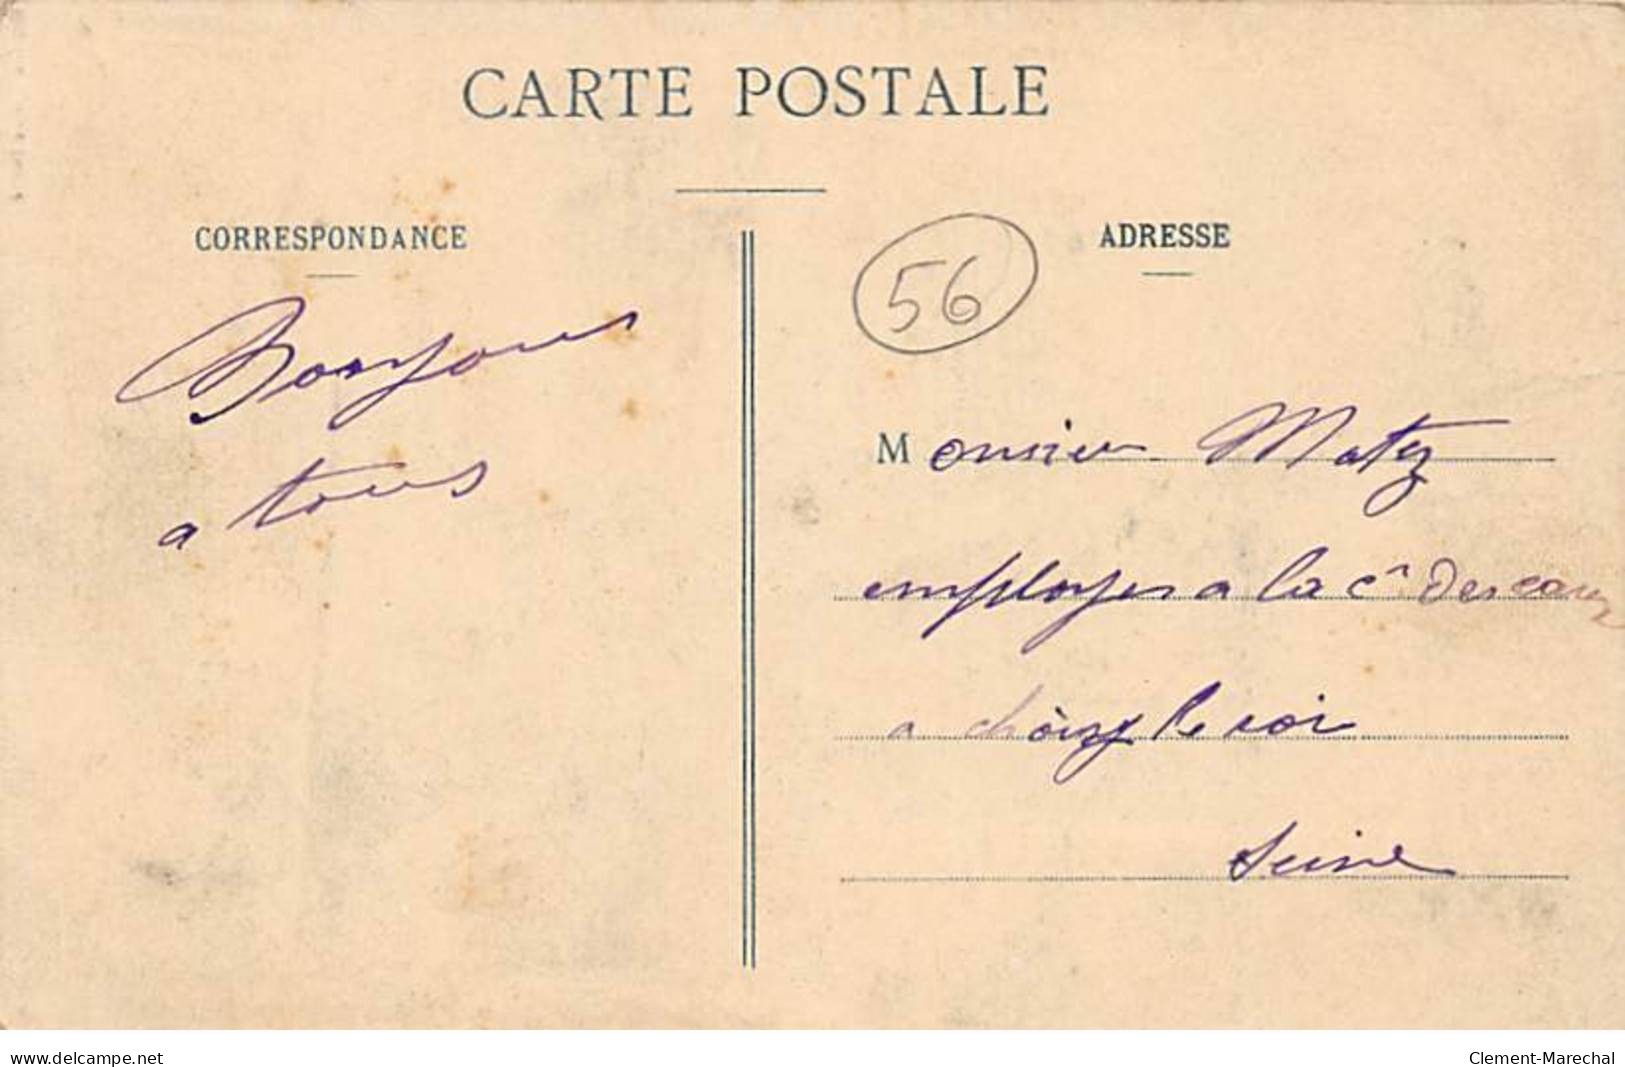 CARTE POSTALE
CORRESPONDANCE
Bonjour
a tous
ADRESSE
56
Monsieur Matez
employer a la Cie Des eaux
a choisy le roi
Seine
www.delcampe.net
Clement-Marechal